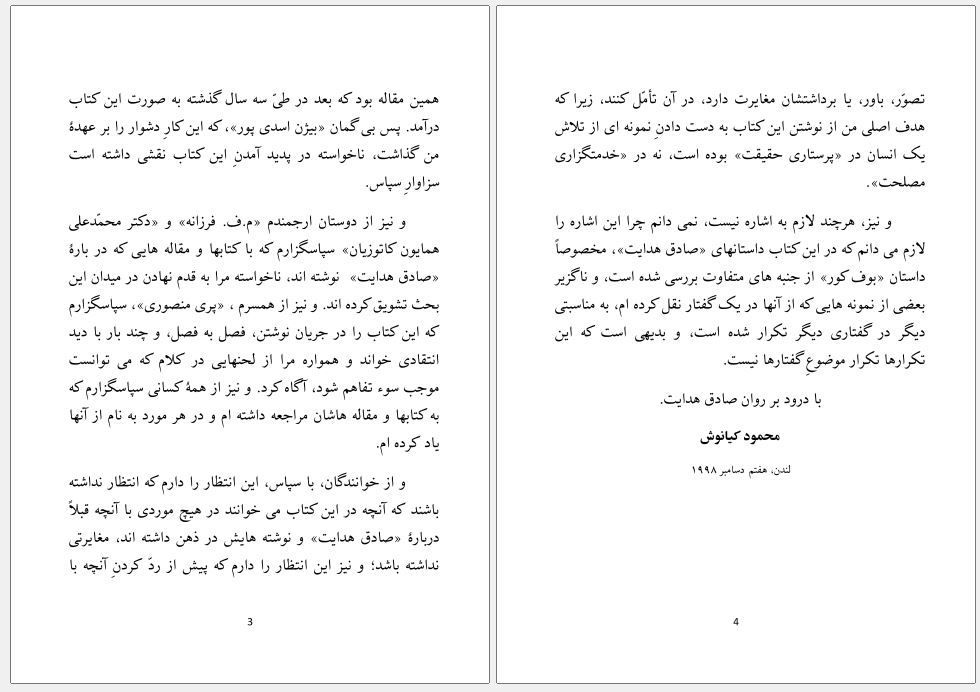 همین مقاله بود که بعد در طیّ سه سال گذشته به صورت این کتاب
درآمد. پس بی گمان «بیژن اسدی پور»، که این کارِ دشوار را بر عهدهٔ
من گذاشت، ناخواسته در پدید آمدنِ این کتاب نقشی داشته است
سزاوارِ سپاس.
و نیز از دوستان ارجمندم «م.ف. فرزانه» و «دکتر محمّدعلی
همایون کاتوزیان» سپاسگزارم که با کتابها و مقاله هایی که در بارهٔ
«صادق هدایت» نوشته اند، ناخواسته مرا به قدم نهادن در میدان این
بحث تشویق کرده اند. و نیز از همسرم ، «پری منصوری»، سپاسگزارم
که این کتاب را در جریان نوشتن، فصل به فصل، و چند بار با دید
انتقادی خواند و همواره مرا از لحنهایی در کلام که می توانست
موجب سوء تفاهم شود، آگاه کرد. و نیز از همهٔ کسانی سپاسگزارم که
به کتابها و مقاله هاشان مراجعه داشته ام و در هر مورد به نام از آنها
یاد کرده ام.
و از خوانندگان، با سپاس، این انتظار را دارم که انتظار نداشته
باشند که آنچه در این کتاب می خوانند در هیچ موردی با آنچه قبلاً
دربارهٔ «صادق هدایت» و نوشته هایش در ذهن داشته اند، مغایرتی
نداشته باشد؛ و نیز این انتظار را دارم که پیش از ردّ کردنِ آنچه با
3
تصوّر، باور، یا برداشتشان مغایرت دارد، در آن تأمّل کنند، زیرا که
هدف اصلی من از نوشتن این کتاب به دست دادنِ نمونه ای از تلاش
یک انسان در «پرستاری حقیقت» بوده است، نه در «خدمتگزاری
مصلحت».
و نیز، هرچند لازم به اشاره نیست، نمی دانم چرا این اشاره را
لازم می دانم که در این کتاب داستانهای «صادق هدایت»، مخصوصاً
داستان «بوف کور» از جنبه های متفاوت بررسی شده است، و ناگزیر
بعضی از نمونه هایی که از آنها در یک گفتار نقل کرده ام، به مناسبتی
دیگر در گفتاری دیگر تکرار شده است، و بدیهی است که این
تکرارها تکرار موضوعِ گفتارها نیست.
با درود بر روان صادق هدایت.
محمود کیانوش
لندن، هفتم دسامبر ۱۹۹۸
4